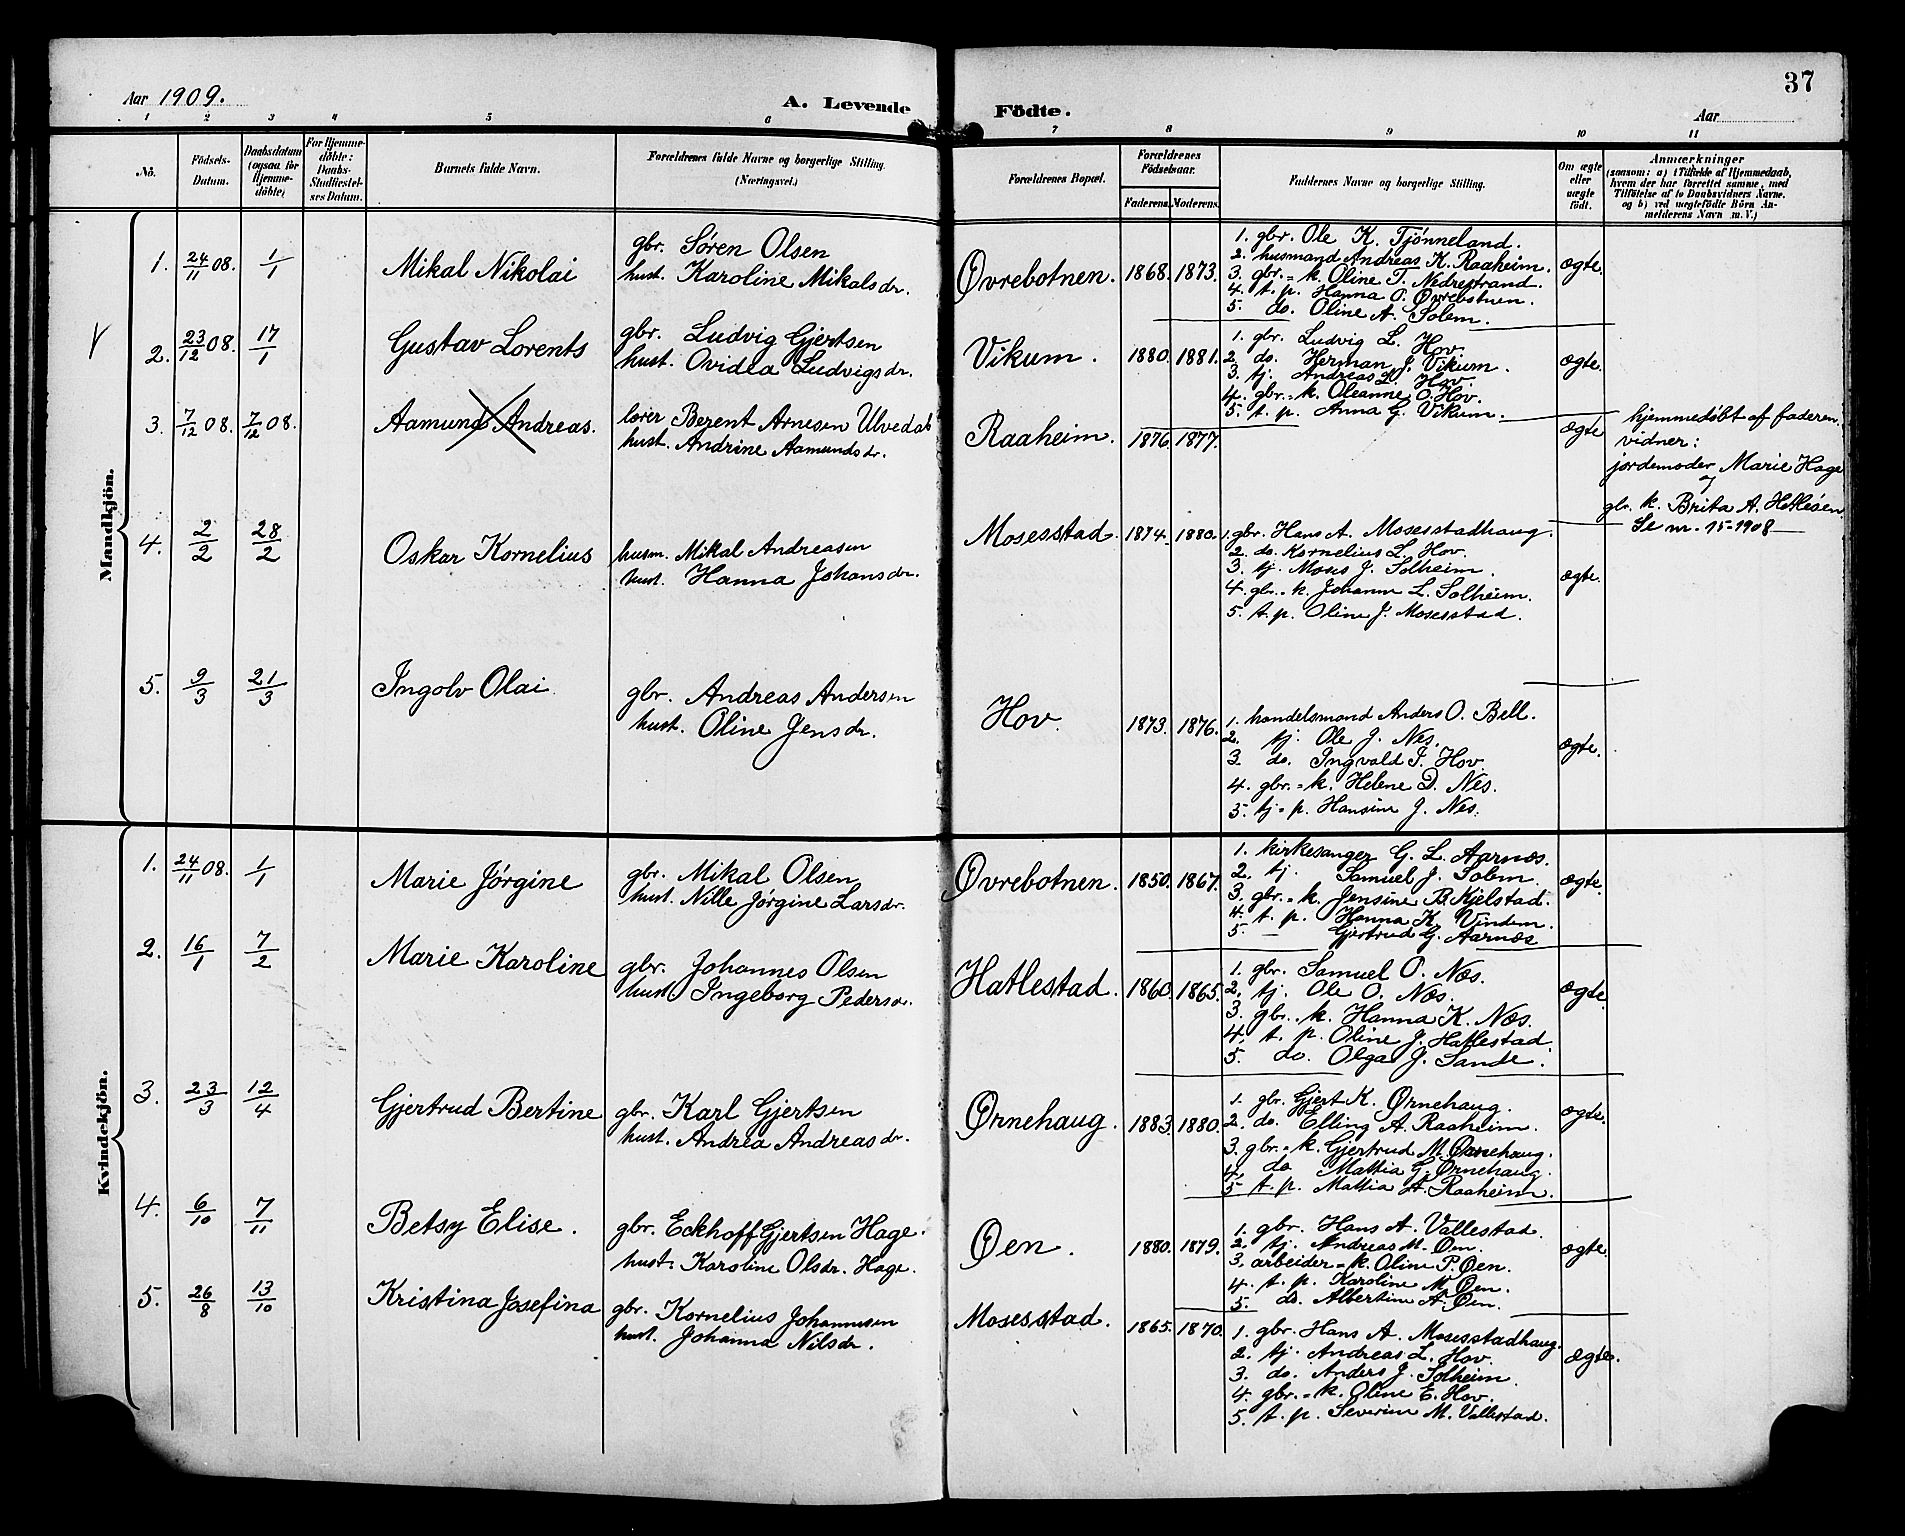 37
Aar 1909.
A. Levende Födte.
Aar
1 2 3 4 5 6 7 8 9 10 11
No.
Födsels-Datum.
Daabsdatum (ogsaa for Hjemme-döbte).
For Hjemme-döbte: Daabs-Stadfæstel-ses Datum.
Barnets fulde Navn.
Forældrenes fulde Navne og borgerlige Stilling. (Næringsvei.)
Forældrenes Bopæl.
Forældrenes Födselsaar.
Faderens. Moderens.
Faddernes Navne og borgerlige Stilling.
Om ægte eller uægte födt.
Anmærkninger
(saasom: a) i Tilfælde af Hjemmedaab,
hvem der har forrettet samme, med
Tilföielse af to Daabsvidners Navne,
og b) ved uægtefödte Börn An-
melderens Navn m. V.)
Mandkjön.
1. 24/11 08. 1/1 Mikal Nikolai
gbr. Søren Olsen
hust. Karoline Mikalsdr.
Øvrebotnen. 1868. 1873.
1. gbr. Ole K. Tjønneland.
2. husmand Andreas K. Raaheim.
3. gbr.=k. Oline T. Nedrestrand.
4. t. p. Hanna O. Øvrebotnen.
5. do. Oline A. Solem.
ægte.
V
2. 23/12 08. 17/1 Gustav Lorents
gbr. Ludvig Gjertsen
hust. Ovidia Ludvigsdr.
Vikum. 1880. 1881.
1. gbr. Ludvig L. Hov.
2. do. Herman J. Vikum.
3. tj. Andreas L. Hov.
4. gbr.=k. Oleanne O. Hov.
5. t. p. Anna G. Vikum.
ægte.
3. 7/12 08. 7/12 08. Aamund Andreas.
lærer Berent Arnesen Ulvedal
hust. Andrine Aamundsdr.
Raaheim. 1876. 1877.
ægte
hjemmedøbt af faderen.
vidner:
jordemoder Marie Hage
gbr. k. Brita A. Hetlesen
Se nr. 15-1908
4. 2/2 28/2 Oskar Kornelius
husm. Mikal Andreasen
hust. Hanna Johansdr.
Mosesstad. 1874. 1880.
1. gbr. Hans A. Mosesstadhaug.
2. do. Kornelius L. Hov.
3. tj. Moses J. Solheim.
4. gbr.=k. Johanne L. Solheim.
5. t. p. Oline J. Mosesstad.
ægte.
5. 9/3 21/3 Ingolv Olai.
gbr. Andreas Andersen
hust. Oline Jensdr.
Hov. 1873. 1876.
1. handelsmand Anders O. Bell.
2. tj. Ole J. Nes.
3. do. Ingvald I. Hov.
4. gbr.=k. Helene D. Nes.
5. tj.=p. Hansine J. Nes.
ægte.
Kvindekjön.
1. 24/11 08. 1/1 Marie Jörgine
gbr. Mikal Olsen
hust. Nille Jörgine Larsdr.
Øvrebotnen. 1850. 1867.
1. kirkesanger G. L. Aarnæs.
2. tj. Samuel J. Solem.
3. gbr.=k. Jensine B. Kjelstad.
4. t. p. Hanna K. Vindem.
5. — Gjertrud G. Aarnæs
ægte.
2. 16/1 7/2 Marie Karoline
gbr. Johannes Olsen
hust. Ingeborg Pedersdr.
Hatlestad. 1860. 1865.
1. gbr. Samuel O. Næs.
2. tj. Ole O. Næs.
3. gbr.=k. Hanna K. Næs.
4. t. p. Oline J. Hatlestad.
5. do. Olga J. Sande.
ægte
3. 23/3 12/4 Gjertrud Bertine
gbr. Karl Gjertsen
hust. Andrea Andreasdr.
Ørnehaug. 1883. 1880.
1. gbr. Gjert K. Ørnehaug.
2. do. Elling A. Raaheim.
3. gbr.=k. Gjertrud M. Ørnehaug.
4. do Mathia G. Ørnehaug.
5. t. p. Mathia A. Raaheim.
ægte.
4. 6/10 7/11 Betsy Elise.
gbr. Eckhoff Gjertsen Hage.
hust. Karoline Olsdr. Hage.
Øen. 1880. 1879.
1. gbr. Hans A. Vallestad.
2. tj. Andreas M. Øen.
3. arbeider=k. Oline P. Øen.
4. t. p. Karoline M. Øen.
5. do. Albertine A. Øen.
ægte.
5. 26/8 13/10 Kristina Josefina
gbr. Kornelius Johannesen
hust. Johanna Nilsdr.
Mosesstad. 1865. 1870.
1. gbr. Hans A. Mosesstadhaug.
2. tj. Andreas L. Hov.
3. do. Anders J. Solheim.
4. gbr.=k. Oline E. Hov.
5. t. p. Severine M. Vallestad.
ægte.